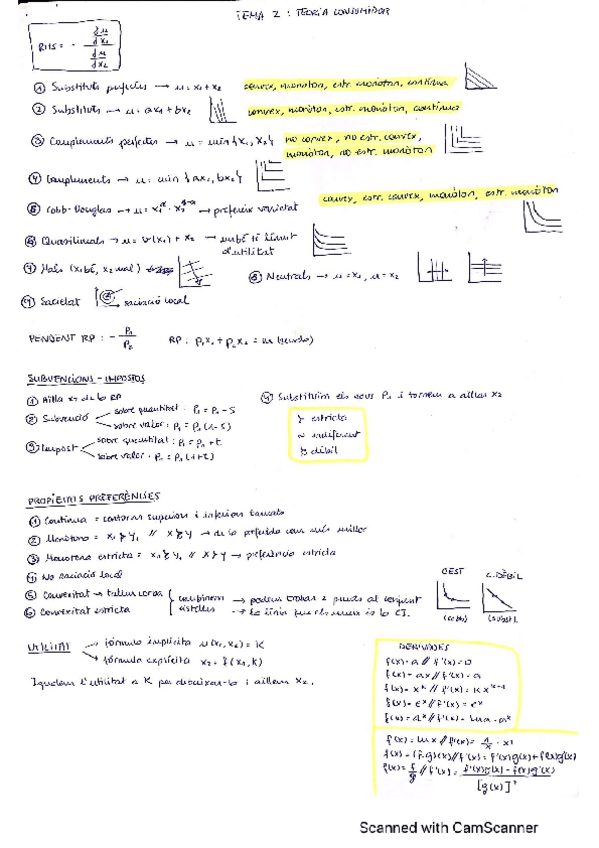 TEMA 2: TEORIA CONSUMIDOR
RMS = - du/dx1 / du/dx2
① Substituts perfectes → u = x1 + x2 convex, monòton, estr. monòton, continua
② Substituts → u = ax1 + bx2 convex, monòton, estr. monòton, continua
③ Complements perfectes → u = min{x1, x2} no convex, no estr. convex,
monòton, no estr. monòton
④ Complements → u = min {ax1, bx2}
convex, estr. convex, monòton, estr. monòton
⑤ Cobb-Douglas → u = x1^α · x2^1-α → preferèix varietat
⑥ Quasilineals → u = v(x1) + x2 → un bé té límit
d'utilitat
⑦ Mals (x1 bé, x2 mal)
⑧ Neutrals → u = x1, u = x2
⑨ Sacietat sàciació local
PENDENT RP: - P1/P2 RP: P1x1 + P2x2 = m (renda)
SUBVENCIONS - IMPOSTOS
① Aïlla x2 de la RP
② Subvenció sobre quantitat: P1 = P1 - S
sobre valor: P1 = P1 (1-S)
③ Impost sobre quantitat: P1 = P1 + t
sobre valor: P1 = P1 (1+t)
④ Substituïm els nous P1 i tornem a aïllar x2
≻ estricta
~ indiferent
≿ dèbil
PROPIETATS PREFERÈNCIES
① Contínua = contorns superior i inferior tancats
② Monòtona = x1 ≥ y1 // x ≿ y → de lo preferido com més millor
③ Monòtona estricta = x1 ≥ y1 // x ≻ y → preferència estricta
④ No saciació local
⑤ Convexitat →
⑥ Convexitat estricta
combinem
cistelles
→ podem trobar 2 punts al conjunt
→ la línia que els uneix és la CI.
C. EST C. DÈBIL
UTILITAT fórmula implícita u(x1, x2) = K
fórmula explícita x2 = f(x1, K)
Igualem l'utilitat a K per dibuixar-la i aïllem x2.
DERIVADES
f(x) = a // f'(x) = 0
f(x) = ax // f'(x) = a
f(x) = x^k // f'(x) = K x^k-1
f(x) = e^x // f'(x) = e^x
f(x) = a^x // f'(x) = ln a · a^x
f(x) = ln x // f'(x) = 1/x · x'
f(x) = (f·g)(x) // f'(x) = f'(x)g(x) + f(x)g'(x)
f(x) = f/g // f'(x) = f'(x)g(x) - f(x)g'(x) / [g(x)]²
Scanned with CamScanner